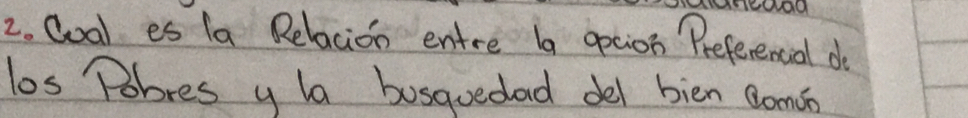 2. Cual es la Relación entre la opción Preferencial de
los Pobres y la busquedad del bien Común